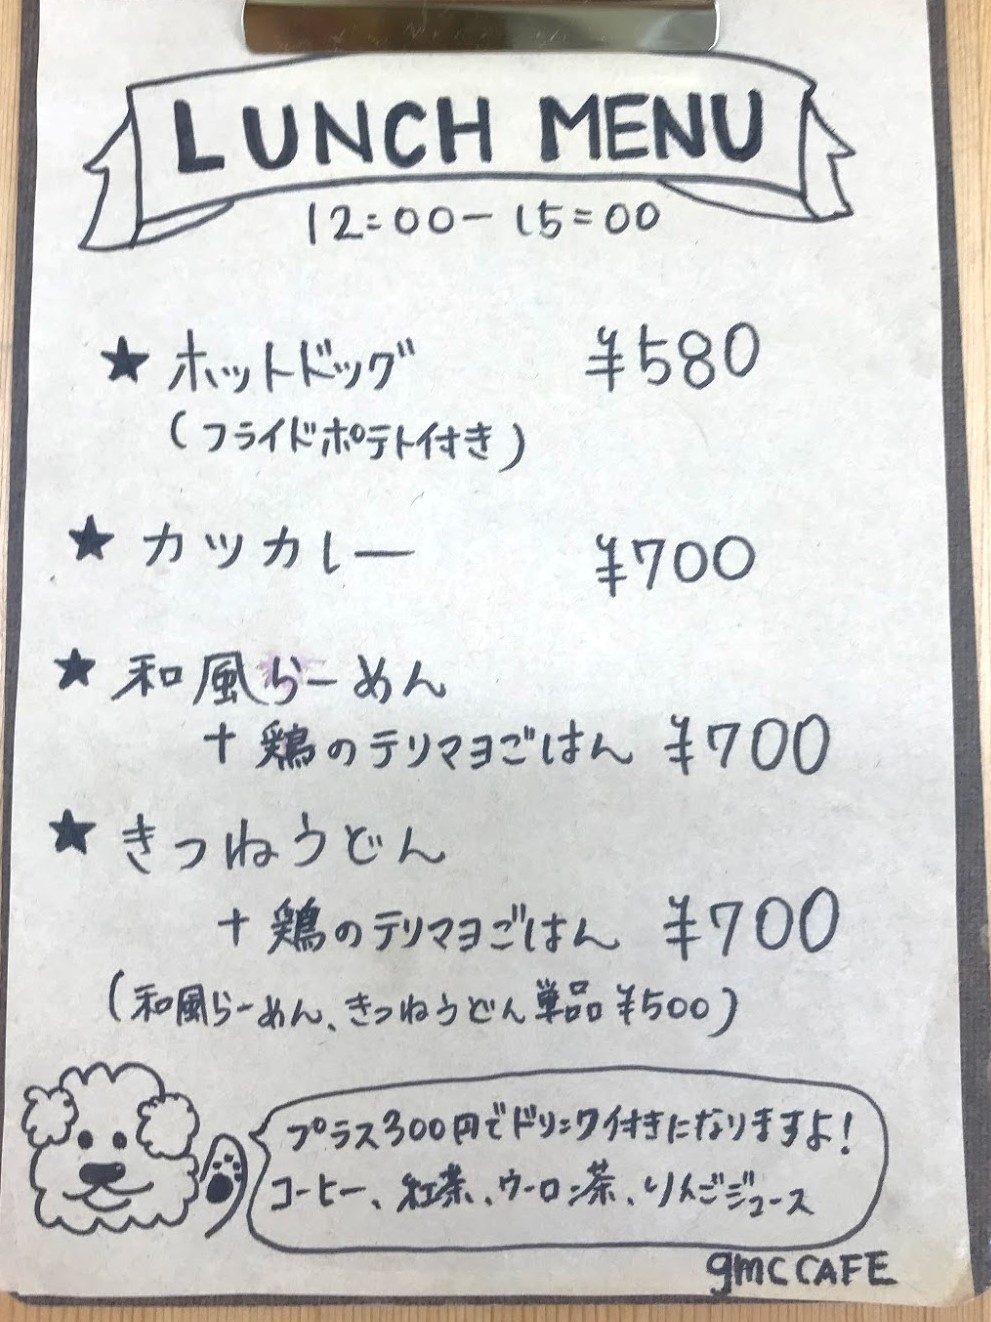 LUNCH MENU
12:00ー15:00
★ ホットドッグ ¥580
(フライドポテト付き)
★ カツカレー ¥700
★ 和風らーめん
+ 鶏のテリマヨごはん ¥700
★ きつねうどん
+ 鶏のテリマヨごはん ¥700
(和風らーめん、きつねうどん単品 ¥500)
プラス300円でドリンク付きになりますよ!
コーヒー、紅茶、ウーロン茶、りんごジュース
gmc CAFE